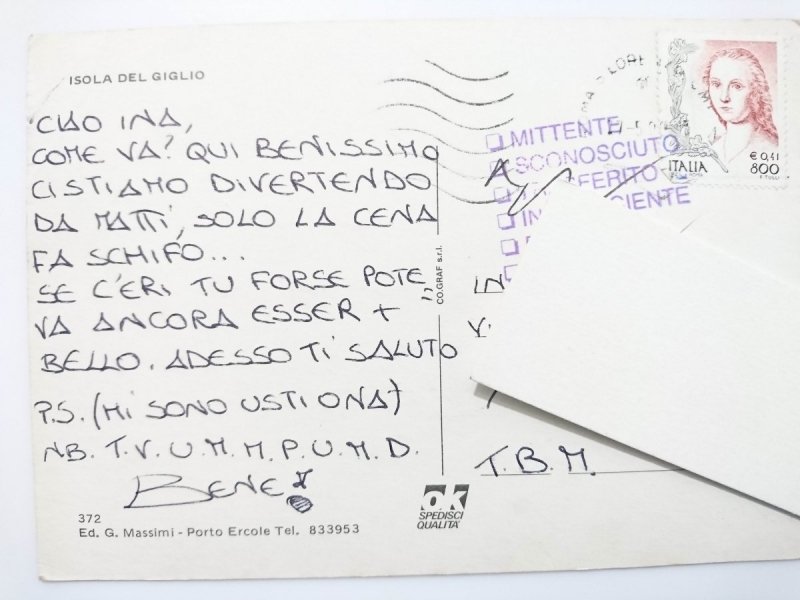 ISOLA DEL GIGLIO
CIAO INA,
COME VA? QUI BENISSIMO
CISTIAMO DIVERTENDO
DA MATTI, SOLO LA CENA
FA SCHIFO...
SE C'ERI TU FORSE POTE
VA ANCORA ESSER +
BELLO. ADESSO TI SALUTO
P.S. (MI SONO USTIONATA)
NB. T.V.U.M.M.P.U.M.D.
BENE!
372
Ed. G. Massimi - Porto Ercole Tel. 833953
CO.GRAF s.r.l.
ok
SPEDISCI
QUALITA'
MITTENTE
SCONOSCIUTO
ITALIA
€ 0,41
800
IN
V.
T.B.M.